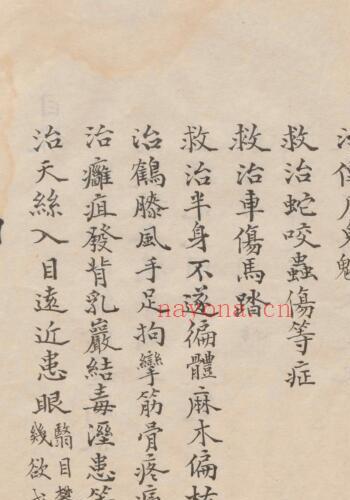 救治蛇咬蟲傷等症
救治車傷馬踏
救治半身不遂徧體麻木偏
治鶴膝風手足拘攣筋骨疼
治癰疽發背乳巖結毒溼患
治天絲入目遠近患眼
目
幾欲
nayona.cn